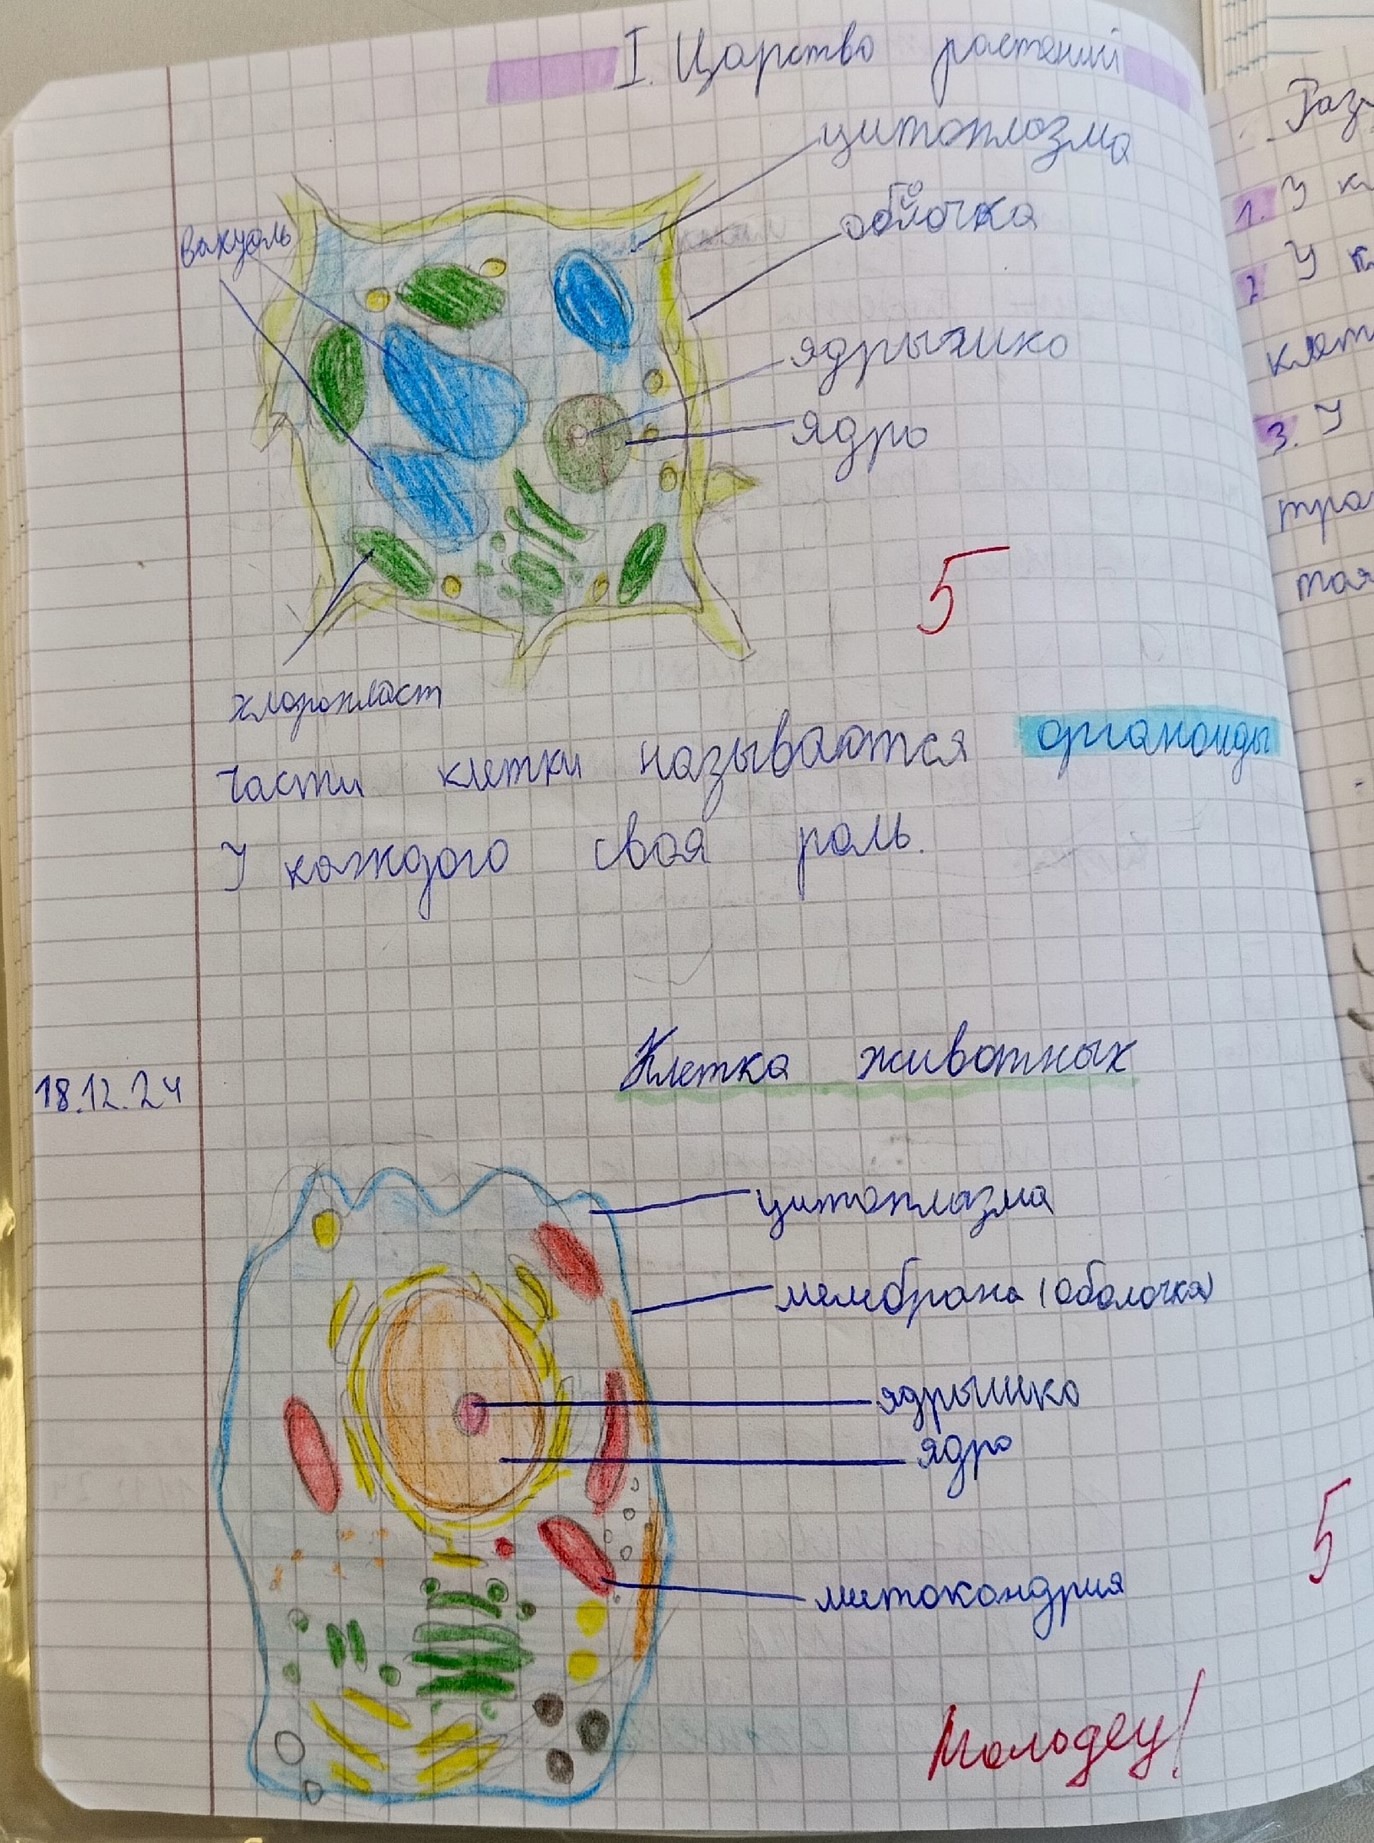 I. Царство растений
цитоплазма
оболочка
вакуоль
ядрышко
ядро
5
хлоропласт
Части клетки называются органоиды
У каждого своя роль.
18.12.24
Клетка животных
цитоплазма
мембрана (оболочка)
ядрышко
ядро
митокондрия
5
Молодец!
1. У
2. У
3. У